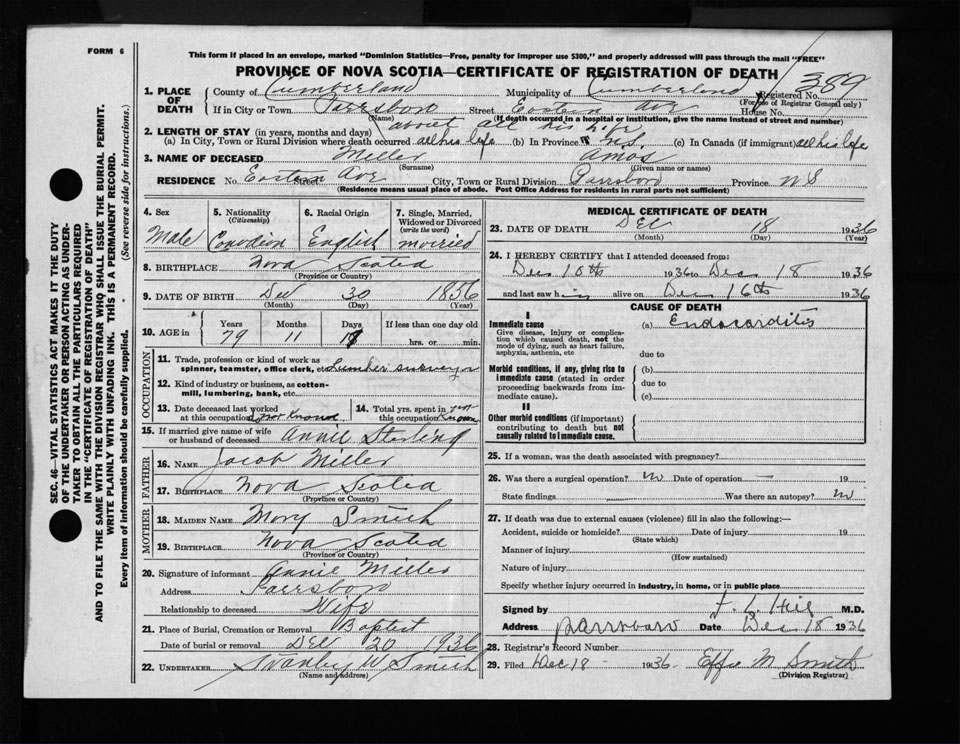 FORM 6
This form if placed in an envelope, marked "Dominion Statistics—Free, penalty for improper use $300," and properly addressed will pass through the mail "FREE"
PROVINCE OF NOVA SCOTIA—CERTIFICATE OF REGISTRATION OF DEATH
389
1. PLACE OF DEATH
County of Cumberland Municipality of Cumberland Registered No.
(For use of Registrar General only)
If in City or Town Parrsboro Street Eastern Ave House No.
(Name) (If death occurred in a hospital or institution, give the name instead of street and number)
2. LENGTH OF STAY (in years, months and days) about all his life
(a) In City, Town or Rural Division where death occurred all his life (b) In Province N.S. (c) In Canada (if immigrant) all his life
3. NAME OF DECEASED Miller Amos
(Surname) (Given name or names)
RESIDENCE No. Eastern Ave Street City, Town or Rural Division Parrsboro Province N S
(Residence means usual place of abode. Post Office Address for residents in rural parts not sufficient)
4. Sex Male
5. Nationality (Citizenship) Canadian
6. Racial Origin English
7. Single, Married, Widowed or Divorced (write the word) married
8. BIRTHPLACE Nova Scotia
(Province or Country)
9. DATE OF BIRTH Dec 30 1856
(Month) (Day) (Year)
10. AGE in Years Months Days If less than one day old
79 11 18 hrs. or min.
OCCUPATION
11. Trade, profession or kind of work as spinner, teamster, office clerk, etc. Lumber surveyor
12. Kind of industry or business, as cotton-mill, lumbering, bank, etc.
13. Date deceased last worked at this occupation not known
14. Total yrs. spent in this occupation not known
15. If married give name of wife or husband of deceased Annie Sterling
FATHER
16. NAME Jacob Miller
17. BIRTHPLACE Nova Scotia
(Province or Country)
MOTHER
18. MAIDEN NAME Mary Smith
19. BIRTHPLACE Nova Scotia
(Province or Country)
20. Signature of informant Annie Miller
Address Parrsboro
Relationship to deceased Wife
21. Place of Burial, Cremation or Removal Baptist
Date of burial or removal Dec 20 1936
22. UNDERTAKER Stanley W Smith
(Name and address)
MEDICAL CERTIFICATE OF DEATH
23. DATE OF DEATH Dec 18 1936
(Month) (Day) (Year)
24. I HEREBY CERTIFY that I attended deceased from:
Dec 10th 1936 to Dec 18 1936
and last saw him alive on Dec 16th 1936
CAUSE OF DEATH
I
Immediate cause (a) Endocarditis
Give disease, injury or complication which caused death, not the mode of dying, such as heart failure, asphyxia, asthenia, etc
due to
Morbid conditions, if any, giving rise to immediate cause (stated in order proceeding backwards from immediate cause).
(b)
due to
(c)
II
Other morbid conditions (if important) contributing to death but not causally related to immediate cause.
25. If a woman, was the death associated with pregnancy?
26. Was there a surgical operation? no Date of operation — 19
State findings — Was there an autopsy? no
27. If death was due to external causes (violence) fill in also the following:—
Accident, suicide or homicide? Date of injury 19
(State which)
Manner of injury
(How sustained)
Nature of injury
Specify whether injury occurred in industry, in home, or in public place
Signed by F. L. Hill M.D.
Address Parrsboro Date Dec 18 1936
28. Registrar's Record Number
29. Filed Dec 18 1936 Effie M Smith
(Division Registrar)
SEC. 46—VITAL STATISTICS ACT MAKES IT THE DUTY
OF THE UNDERTAKER OR PERSON ACTING AS UNDER-
TAKER TO OBTAIN ALL THE PARTICULARS REQUIRED
IN THE "CERTIFICATE OF REGISTRATION OF DEATH"
AND TO FILE THE SAME WITH THE DIVISION REGISTRAR WHO SHALL ISSUE THE BURIAL PERMIT.
WRITE PLAINLY WITH UNFADING INK. THIS IS A PERMANENT RECORD.
Every item of information should be carefully supplied. (See reverse side for instructions.)